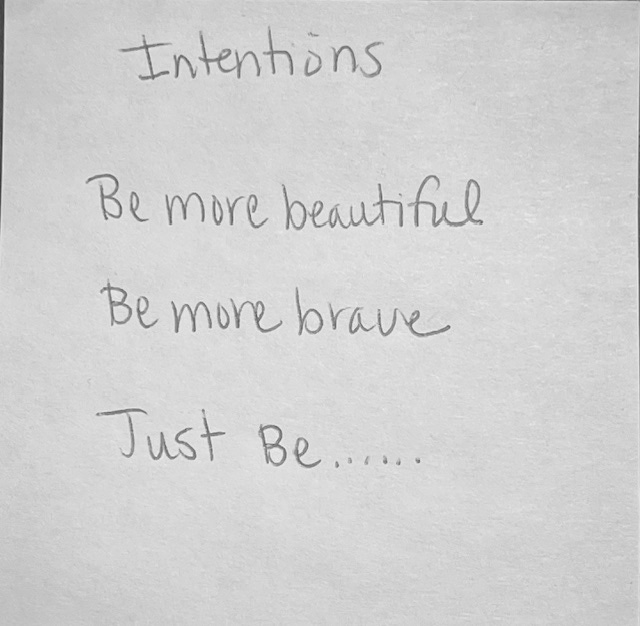 Intentions
Be more beautiful
Be more brave
Just Be......